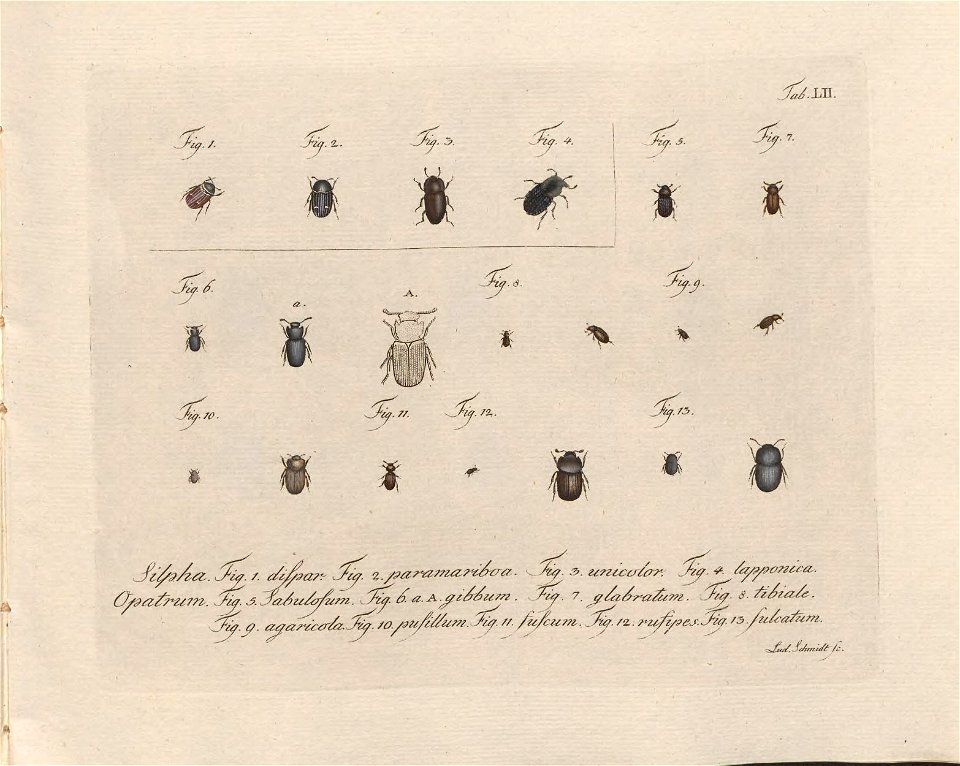 Tab. LII.
Fig. 1. Fig. 2. Fig. 3. Fig. 4. Fig. 5. Fig. 7.
Fig. 6. a. A. Fig. 8. Fig. 9.
Fig. 10. Fig. 11. Fig. 12. Fig. 13.
Silpha. Fig. 1. diſpar. Fig. 2. paramariboa. Fig. 3. unicolor. Fig. 4. lapponica.
Opatrum. Fig. 5. Sabuloſum. Fig. 6. a. A. gibbum. Fig. 7. glabratum. Fig. 8. tibiale.
Fig. 9. agaricola. Fig. 10. puſillum. Fig. 11. fuſcum. Fig. 12. rufipes. Fig. 13. ſulcatum.
Lud. Schmidt ſc.